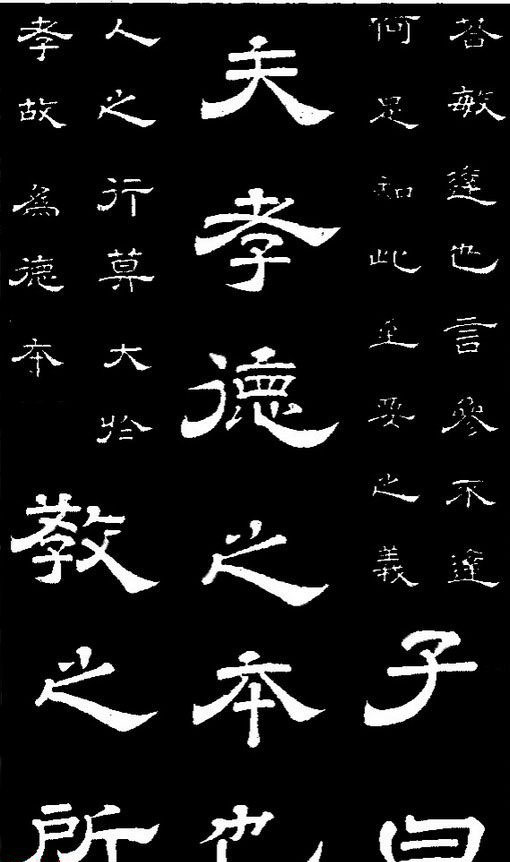 荅敏達也言參不達
何足知此至要之義
子曰
夫孝德之本也
人之行莫大於
孝故爲德本
教之所